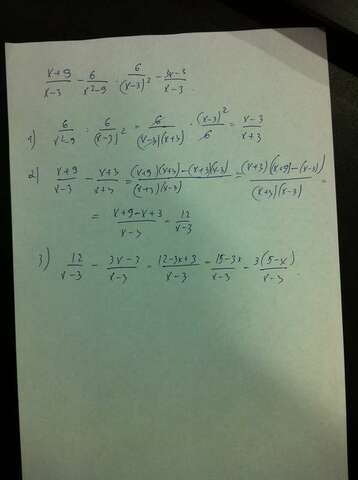 (x+9)/(x-3) - 6/(x²-9) : 6/(x-3)² - (3x-3)/(x-3)
1) 6/(x²-9) : 6/(x-3)² = 6/((x-3)(x+3)) · (x-3)²/6 = (x-3)/(x+3)
2) (x+9)/(x-3) - (x+3)/(x+3) = ((x+9)(x+3)-(x+3)(x-3))/((x+3)(x-3)) = ((x+3)(x+9)-(x-3))/((x+3)(x-3)) =
= (x+9-x+3)/(x-3) = 12/(x-3)
3) 12/(x-3) - (3x-3)/(x-3) = (12-3x+3)/(x-3) = (15-3x)/(x-3) = 3(5-x)/(x-3).